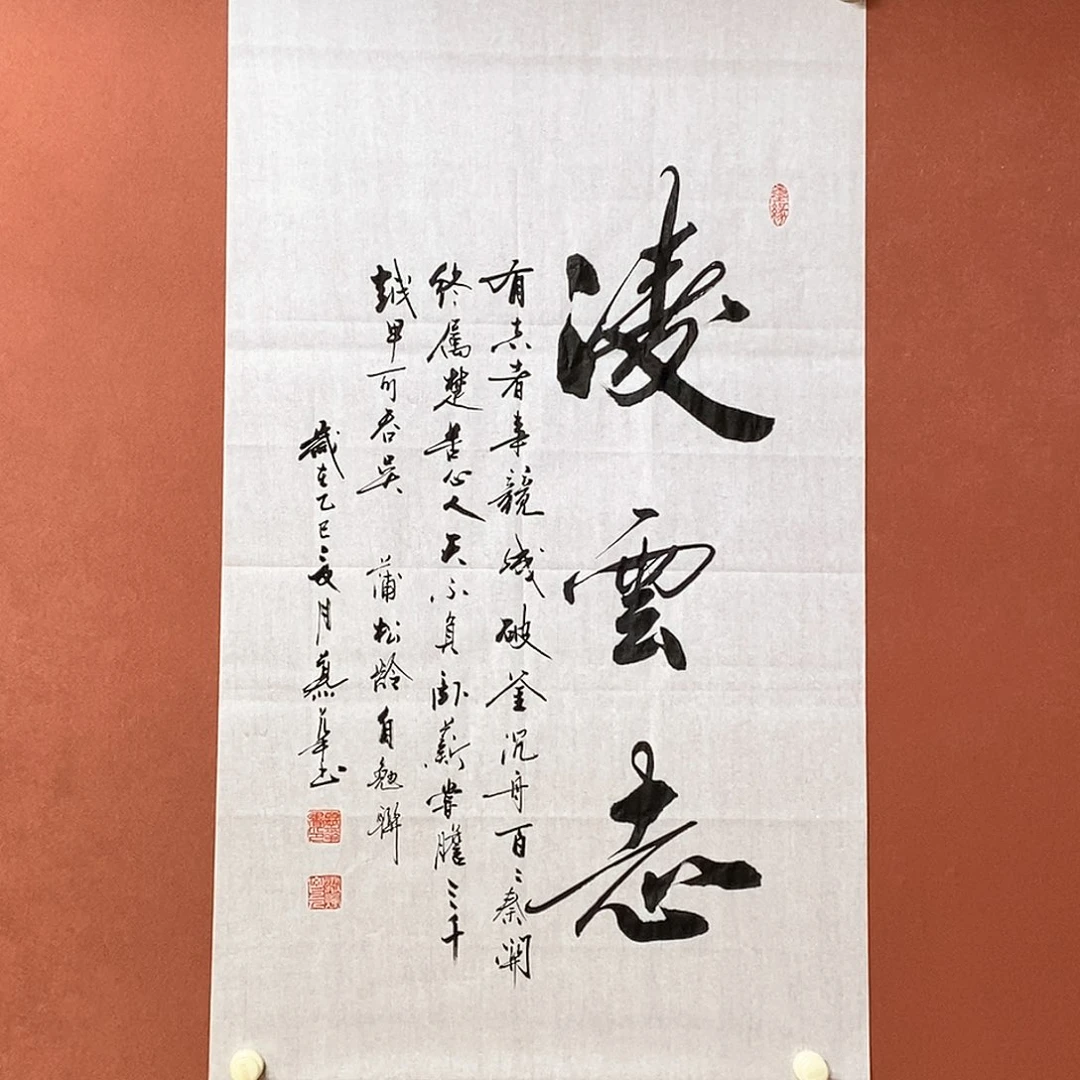 凌雲志
有志者事竟成破釜沉舟百二秦関
終属楚苦心人天不負臥薪嘗膽三千
越甲可吞吴 蒲松齡自勉聯
歲在乙巳夏月燕華书